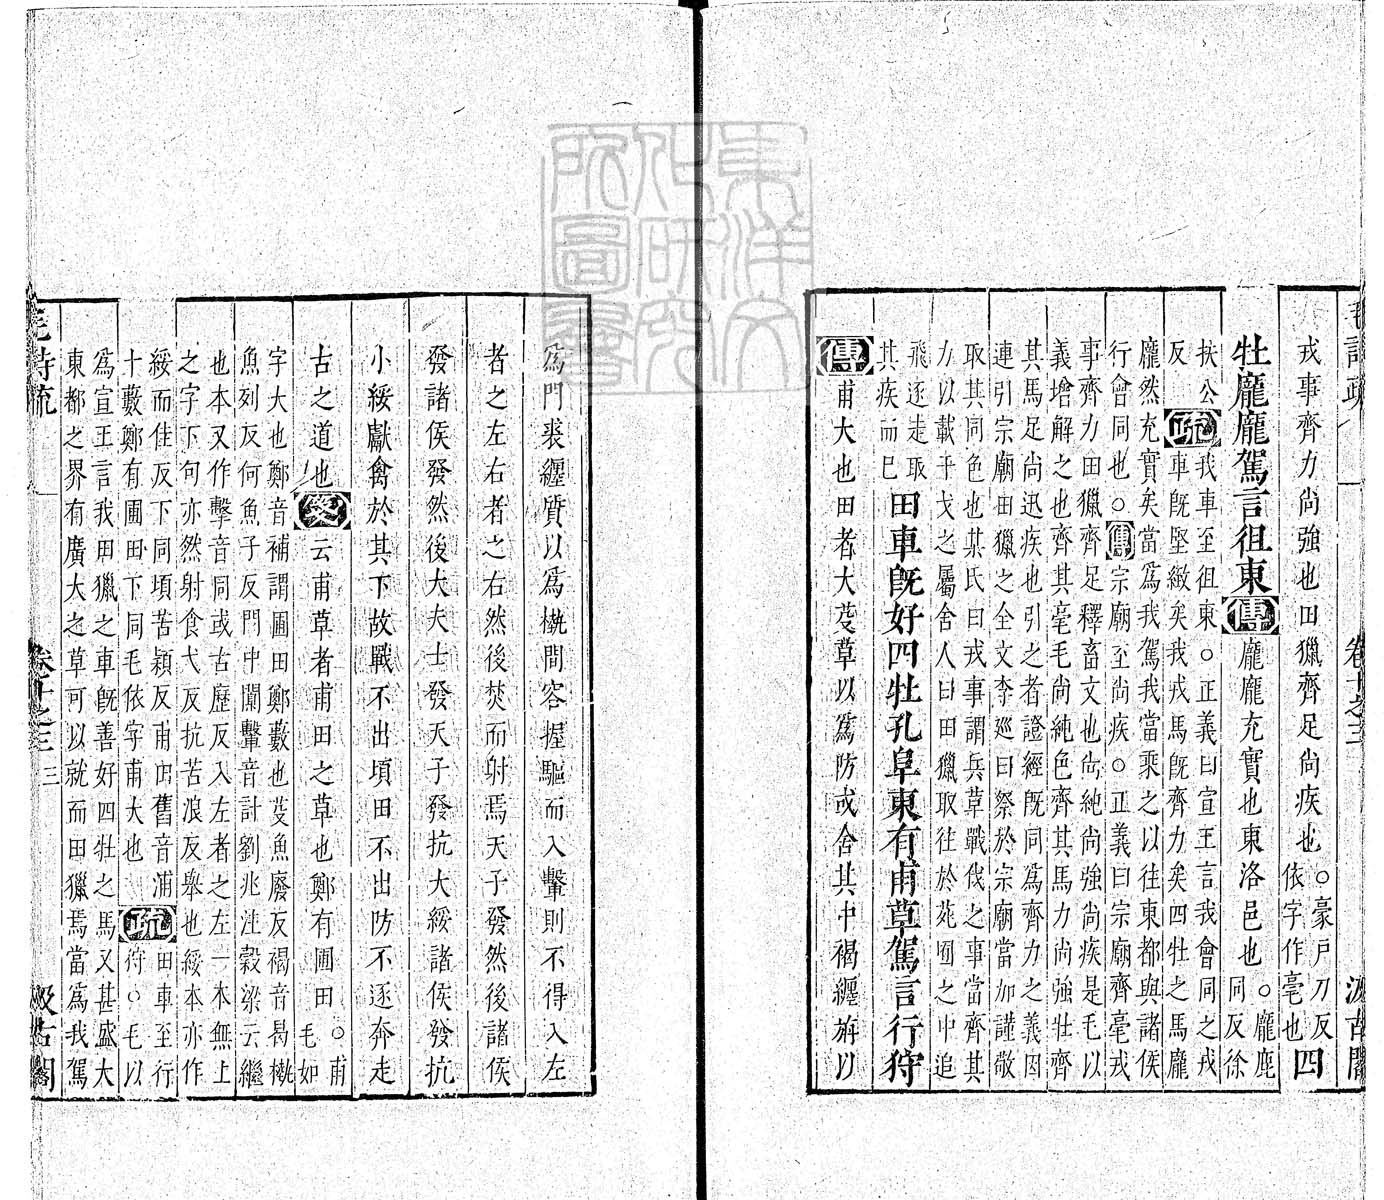 戎事齊力尚強也田獵齊足尚疾也○豪戸刀反
依字作毫也四
牡龐龐駕言徂東傳龐龐充實也東洛邑也○龐鹿
同反徐
扶公
反疏我車至徂東○正義曰宣王言我會同之戎
車既堅緻矣我戎馬既齊力矣四牡之馬龐
龐然充實矣當爲我駕我當乘之以往東都與諸侯
行會同也○傳宗廟至尚疾○正義曰宗廟齊毫戎
事齊力田獵齊足釋畜文也尚純尚強尚疾是毛以
義增解之也齊其毫毛尚純色齊其馬力尚強壯齊
其馬足尚迅疾也引之者證經既同爲齊力之義因
連引宗廟田獵之全文李巡曰祭於宗廟當加謹敬
取其同色也某氏曰戎事謂兵革戰伐之事當齊其
力以載干戈之屬舍人曰田獵取往於苑囿之中追
飛逐走取
其疾而已田車既好四牡孔阜東有甫草駕言行狩
傳甫大也田者大芟草以爲防或舍其中褐纏旃以
爲門裘纏質以爲槸間容握驅而入轚則不得入左
者之左右者之右然後焚而射焉天子發然後諸侯
發諸侯發然後大夫士發天子發抗大綏諸侯發抗
小綏獻禽於其下故戰不出頃田不出防不逐奔走
古之道也箋云甫草者甫田之草也鄭有圃田○甫
毛如
字大也鄭音補謂圃田鄭藪也芟魚廢反褐音曷槸
魚列反何魚子反門中闑轚音計劉兆注穀梁云繼
也本又作擊音同或古歷反入左者之左一本無上
之字下句亦然射食弋反抗苦浪反舉也綏本亦作
緌而佳反下同頃苦穎反甫田舊音浦
十藪鄭有圃田下同毛依字甫大也疏田車至行
狩○毛以
爲宣王言我田獵之車既善好四牡之馬又甚盛大
東都之界有廣大之草可以就而田獵焉當爲我駕
毛詩疏 卷十之三 三 汲古閣